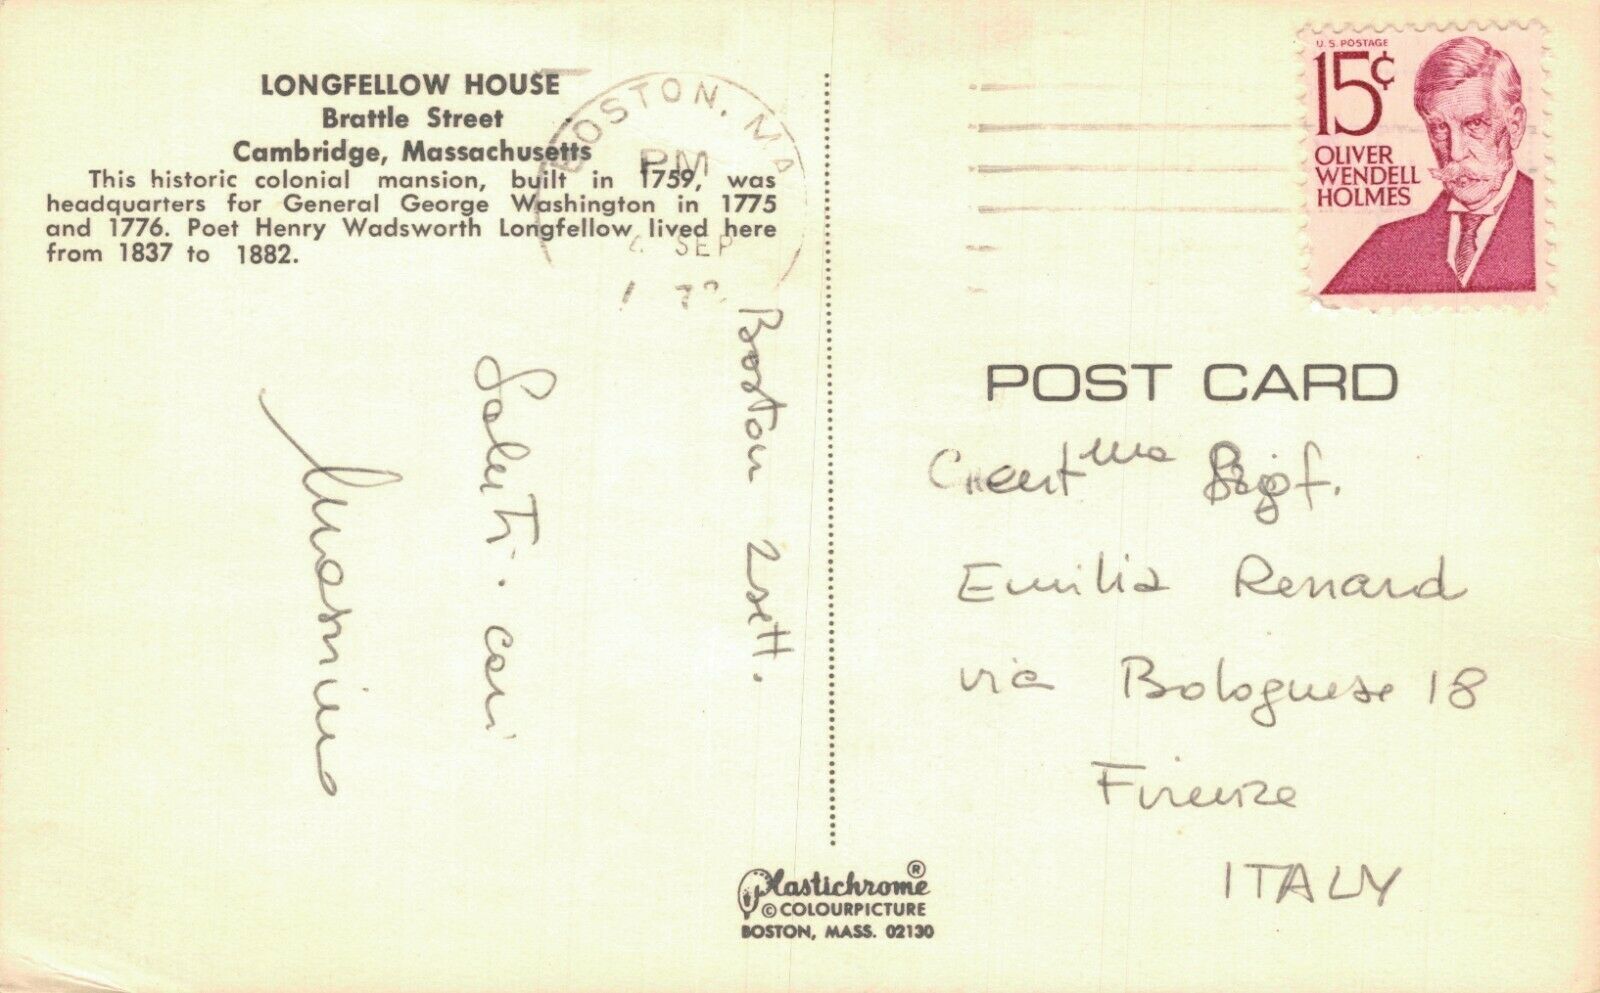 LONGFELLOW HOUSE
Brattle Street
Cambridge, Massachusetts
This historic colonial mansion, built in 1759, was
headquarters for General George Washington in 1775
and 1776. Poet Henry Wadsworth Longfellow lived here
from 1837 to 1882.
BOSTON, MA
PM
SEP
Boston 2 sett.
Saluti cari
Plastichrome®
© COLOURPICTURE
BOSTON, MASS. 02130
U.S. POSTAGE
15¢
OLIVER
WENDELL
HOLMES
POST CARD
Emilia Renard
via Bolognese 18
Firenze
ITALY